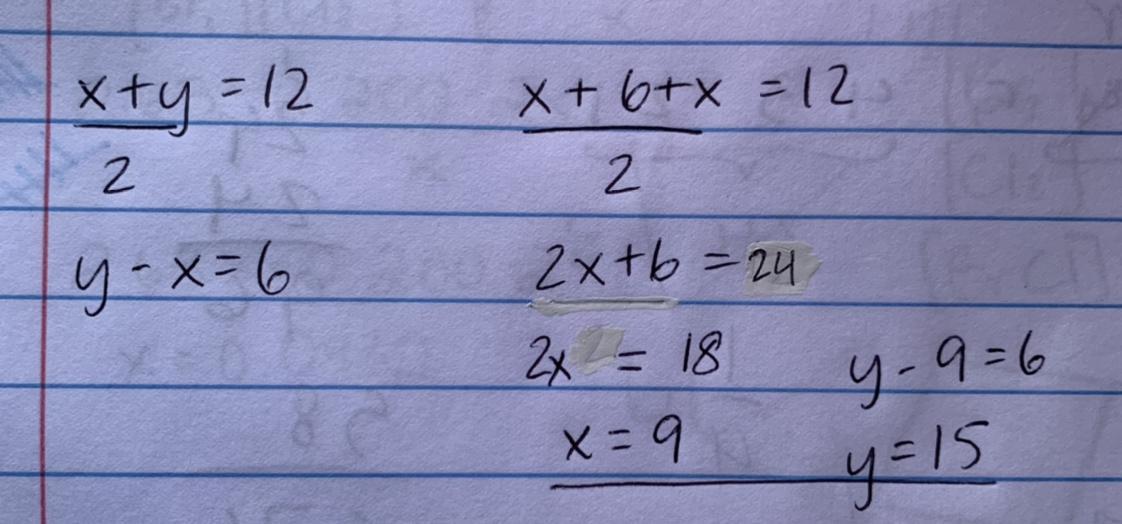 x+y = 12
2
y - x = 6
x + 6+x = 12
2
2x+6 = 24
2x = 18
x = 9
y - 9 = 6
y = 15